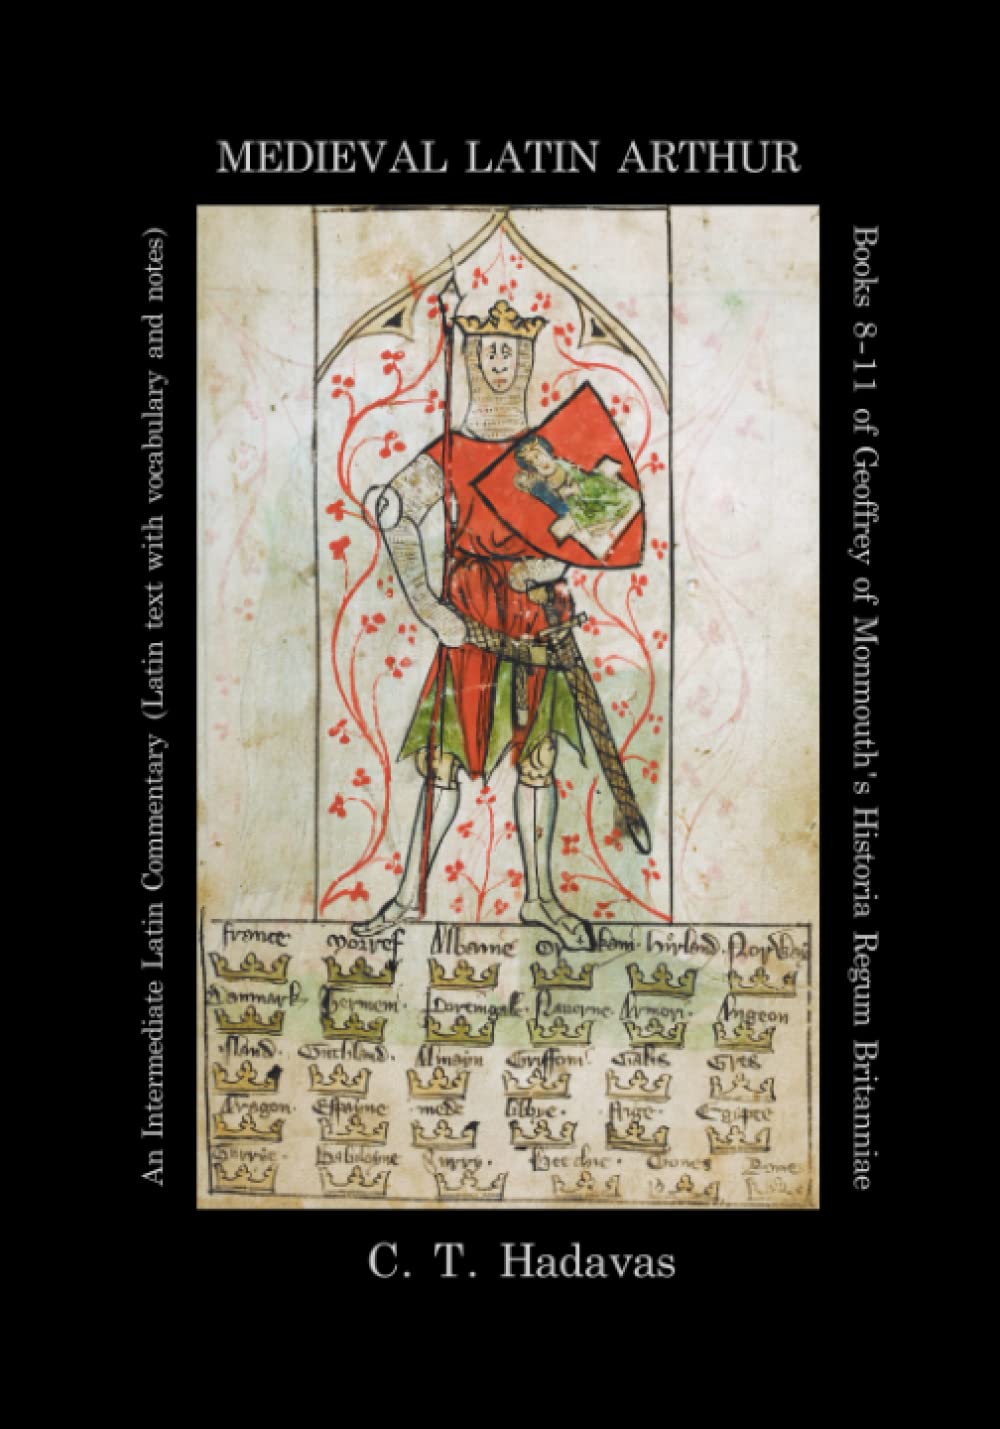 MEDIEVAL LATIN ARTHUR
An Intermediate Latin Commentary (Latin text with vocabulary and notes)
Books 8-11 of Geoffrey of Monmouth's Historia Regum Britanniae
france Norref Albanie Orkani hirland Norway
Danmark Hermeni Portingale Naverne Armori Angeon
Island Guthland Almayn Griffoni Galis Gres
Aragon Espayne mede libbye Egipte
Babiloyne
C. T. Hadavas